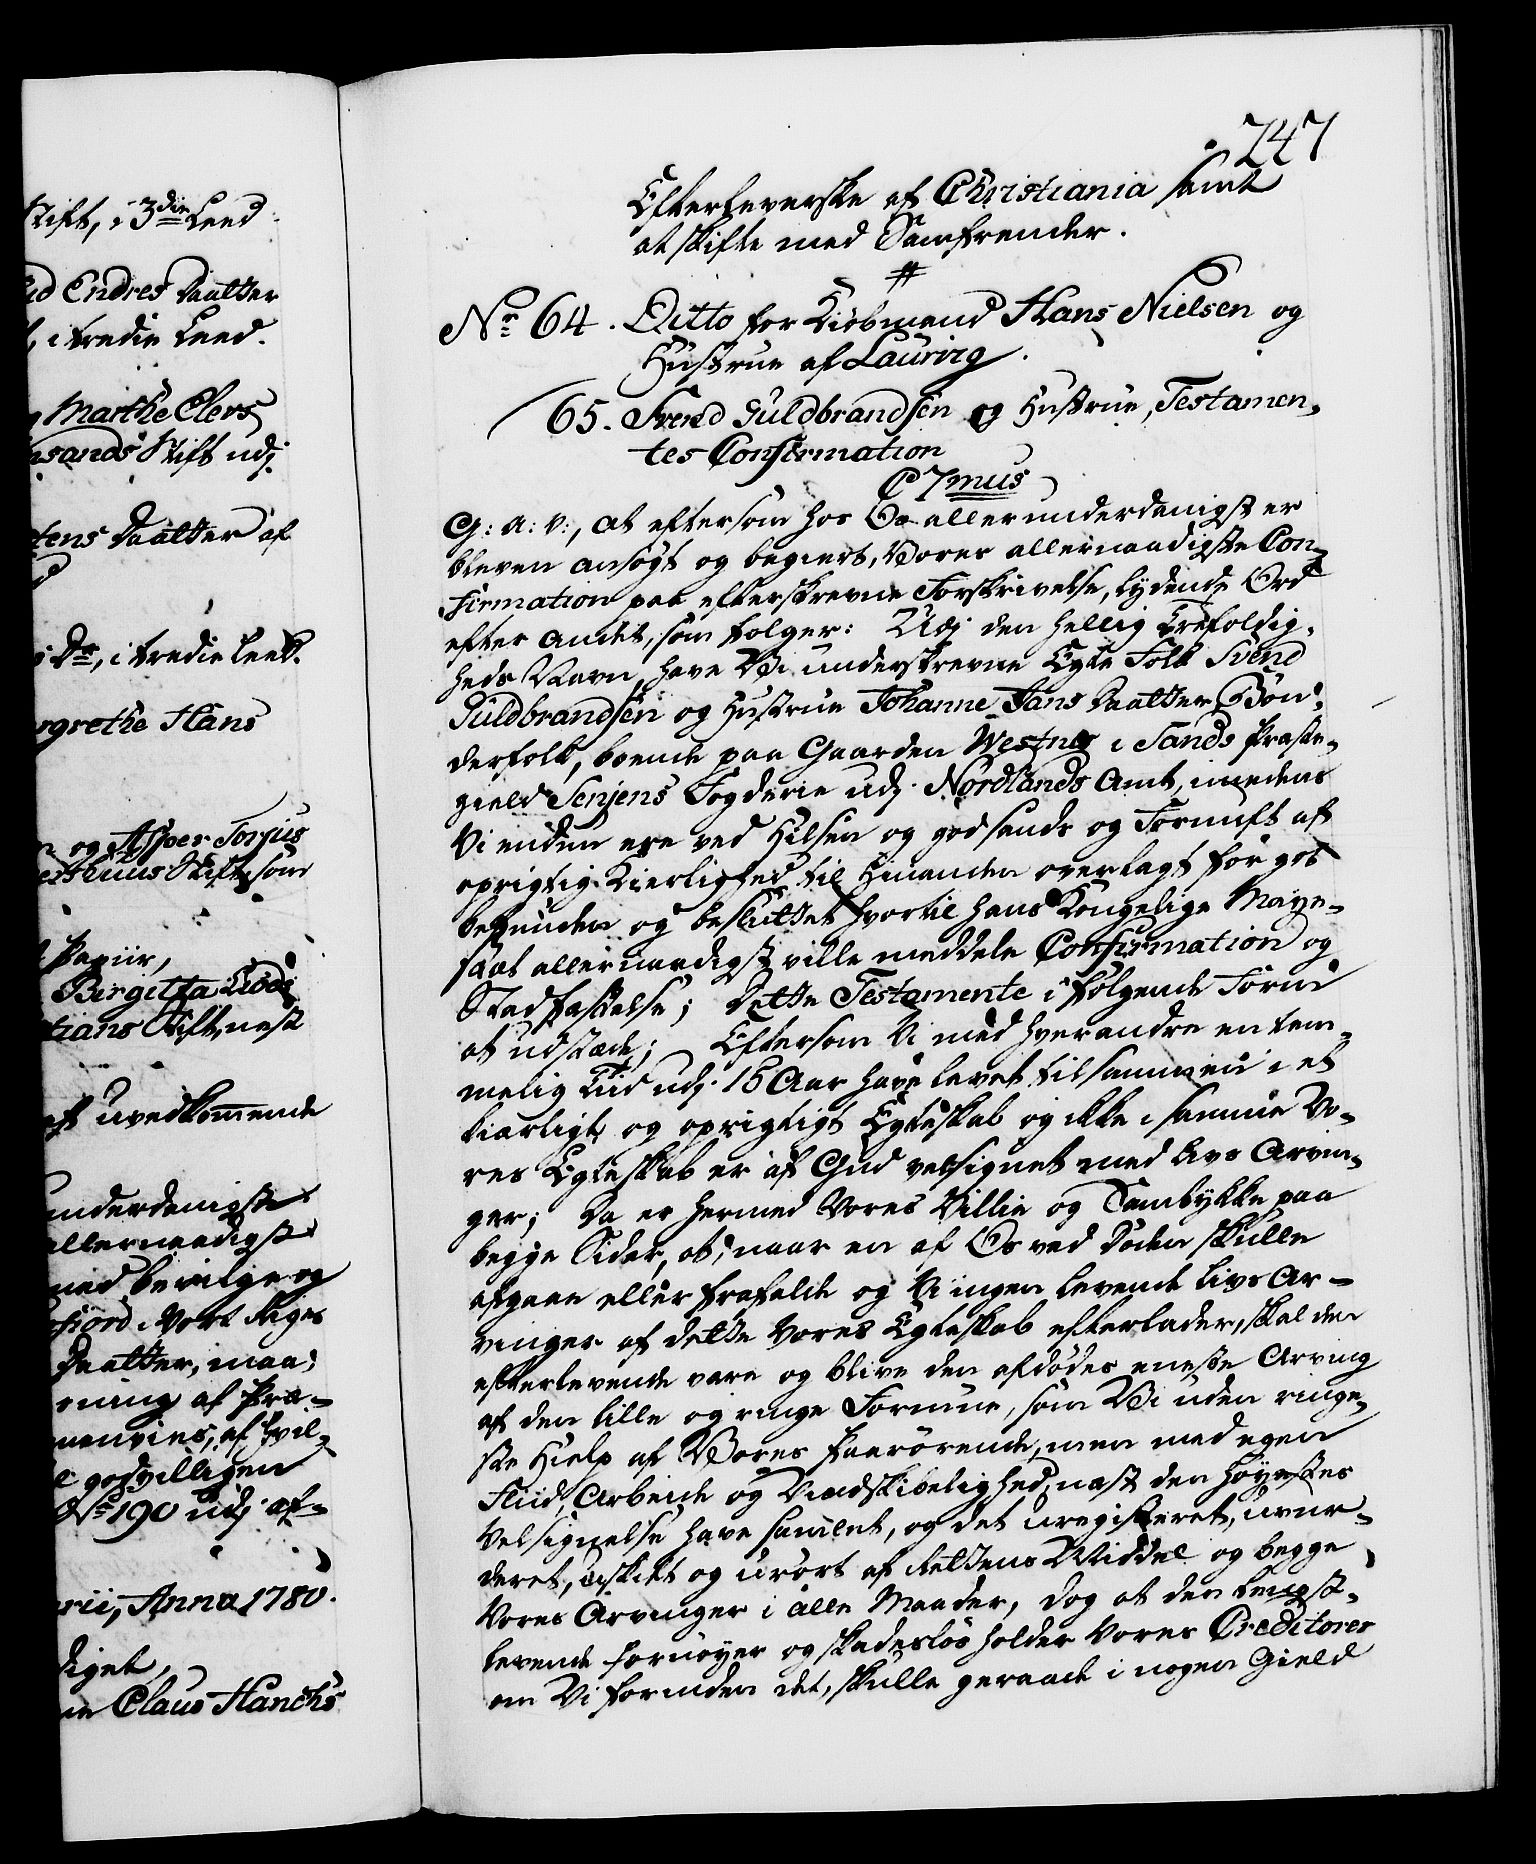 Stift, i 3die Leed
Endres Daatter
i tredie Leed.
Marthe Elers
sands Stift udj
tens Daatter af
Dr, i tredie Leed.
grethe Hans
og Asper Torjus
huus Stift som
Papiir,
Birgitta
tians Stift, nest
af uvedkommende
underdanigst
allernaadigst
bevilge og
fiord i Vort Riges
Daatter, maa,
af Præ-
af
godvilligen
No 190 udj af-
rii, Anno 1780.
diget,
Claus Hanchs
247
Efterleverske af Christiania samt
at skifte med Samfrender.
No 64. Ditto for Kiøbmand Hans Nielsen og
Hustrue af Laurvig.
65. Svend Guldbrandsen og Hustrue, Testamen-
tes Confirmation
C 7mus
G: A: V:, at eftersom hos Os allerunderdanigst er
bleven ansøgt og begiert, Vores allernaadigste Con-
firmation paa efterskrevne Forskrivelse, lydende Ord
efter andet, som følger: Udj den hellig Trefoldig-
heds Navn, have Vi underskrevne Egte Folk Svend
Guldbrandsen og Hustrue Johanne Jans Daatter Bøn-
derfolk, boende paa Gaarden Westnes i Sands Præste-
gield Senjens Fogderie udj Nordlands Amt, imedens
Vi endnu ere ved Helsen og god Sands og Fornuft af
oprigtig Kierlighed til hinanden overlagt for got
befunden og besluttet hvortil hans Kongelige Maye-
stæt allernaadigst ville meddele Confirmation og
Stadfæstelse; Dette Testamente i følgende Form
at udstæde; Eftersom Vi med hverandre en tem-
melig Tiid udj 15 Aar have levet tilsammen i et
kiærligt og oprigtigt Egteskab og ikke i samme Vo-
res Egteskab er af Gud velsignet med Livs Arvin-
ger; Da er hermed Vores Villie og Samtykke paa
begge Sider, at, naar en af Os ved Døden skulle
afgaae eller frafalde og Vi ingen levende Livs Ar-
vinger af dette Vores Egteskab efterlader, skal den
efterlevende være og blive den afdødes eneste Arving
af den lille og ringe Formue, som Vi uden ringe-
ste Hielp af Vores paarørende, men med egen
Fliid, Arbeide og Vindskibelighed, næst den Høyestes
Velsignelse have samlet, og det uregistreret, uvur-
deret, uskift og urørt af Rettens Middel og begge
Vores Arvinger i alle Maader, dog at den lengst-
levende fornøyer og skadesløs holder Vores Creditorer
om Vi forinden det, skulle geraade i nogen Gield